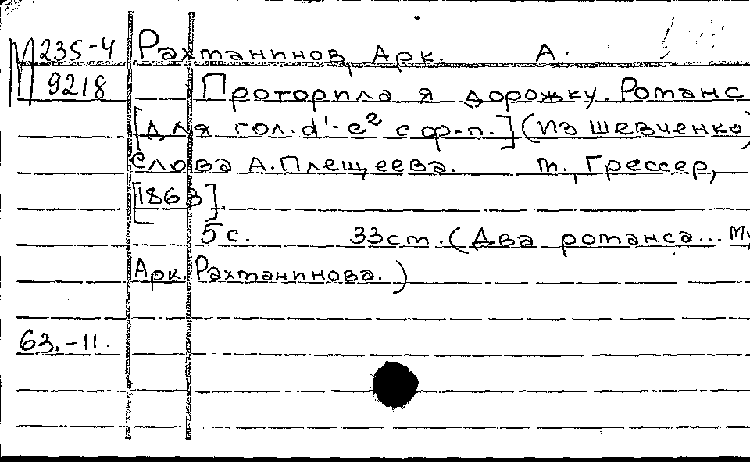 М 235-4 Рахтанинов, Арк. А.
9218 Проторила я дорожку. Романс
[для гол. d'-e² с ф-п.] (Из Шевченко)
Слова А. Плещеева. М., Грессер,
[1863].
5 с. 33 см. (Два романса...
Арк. Рахтанинова.)
63.-11.